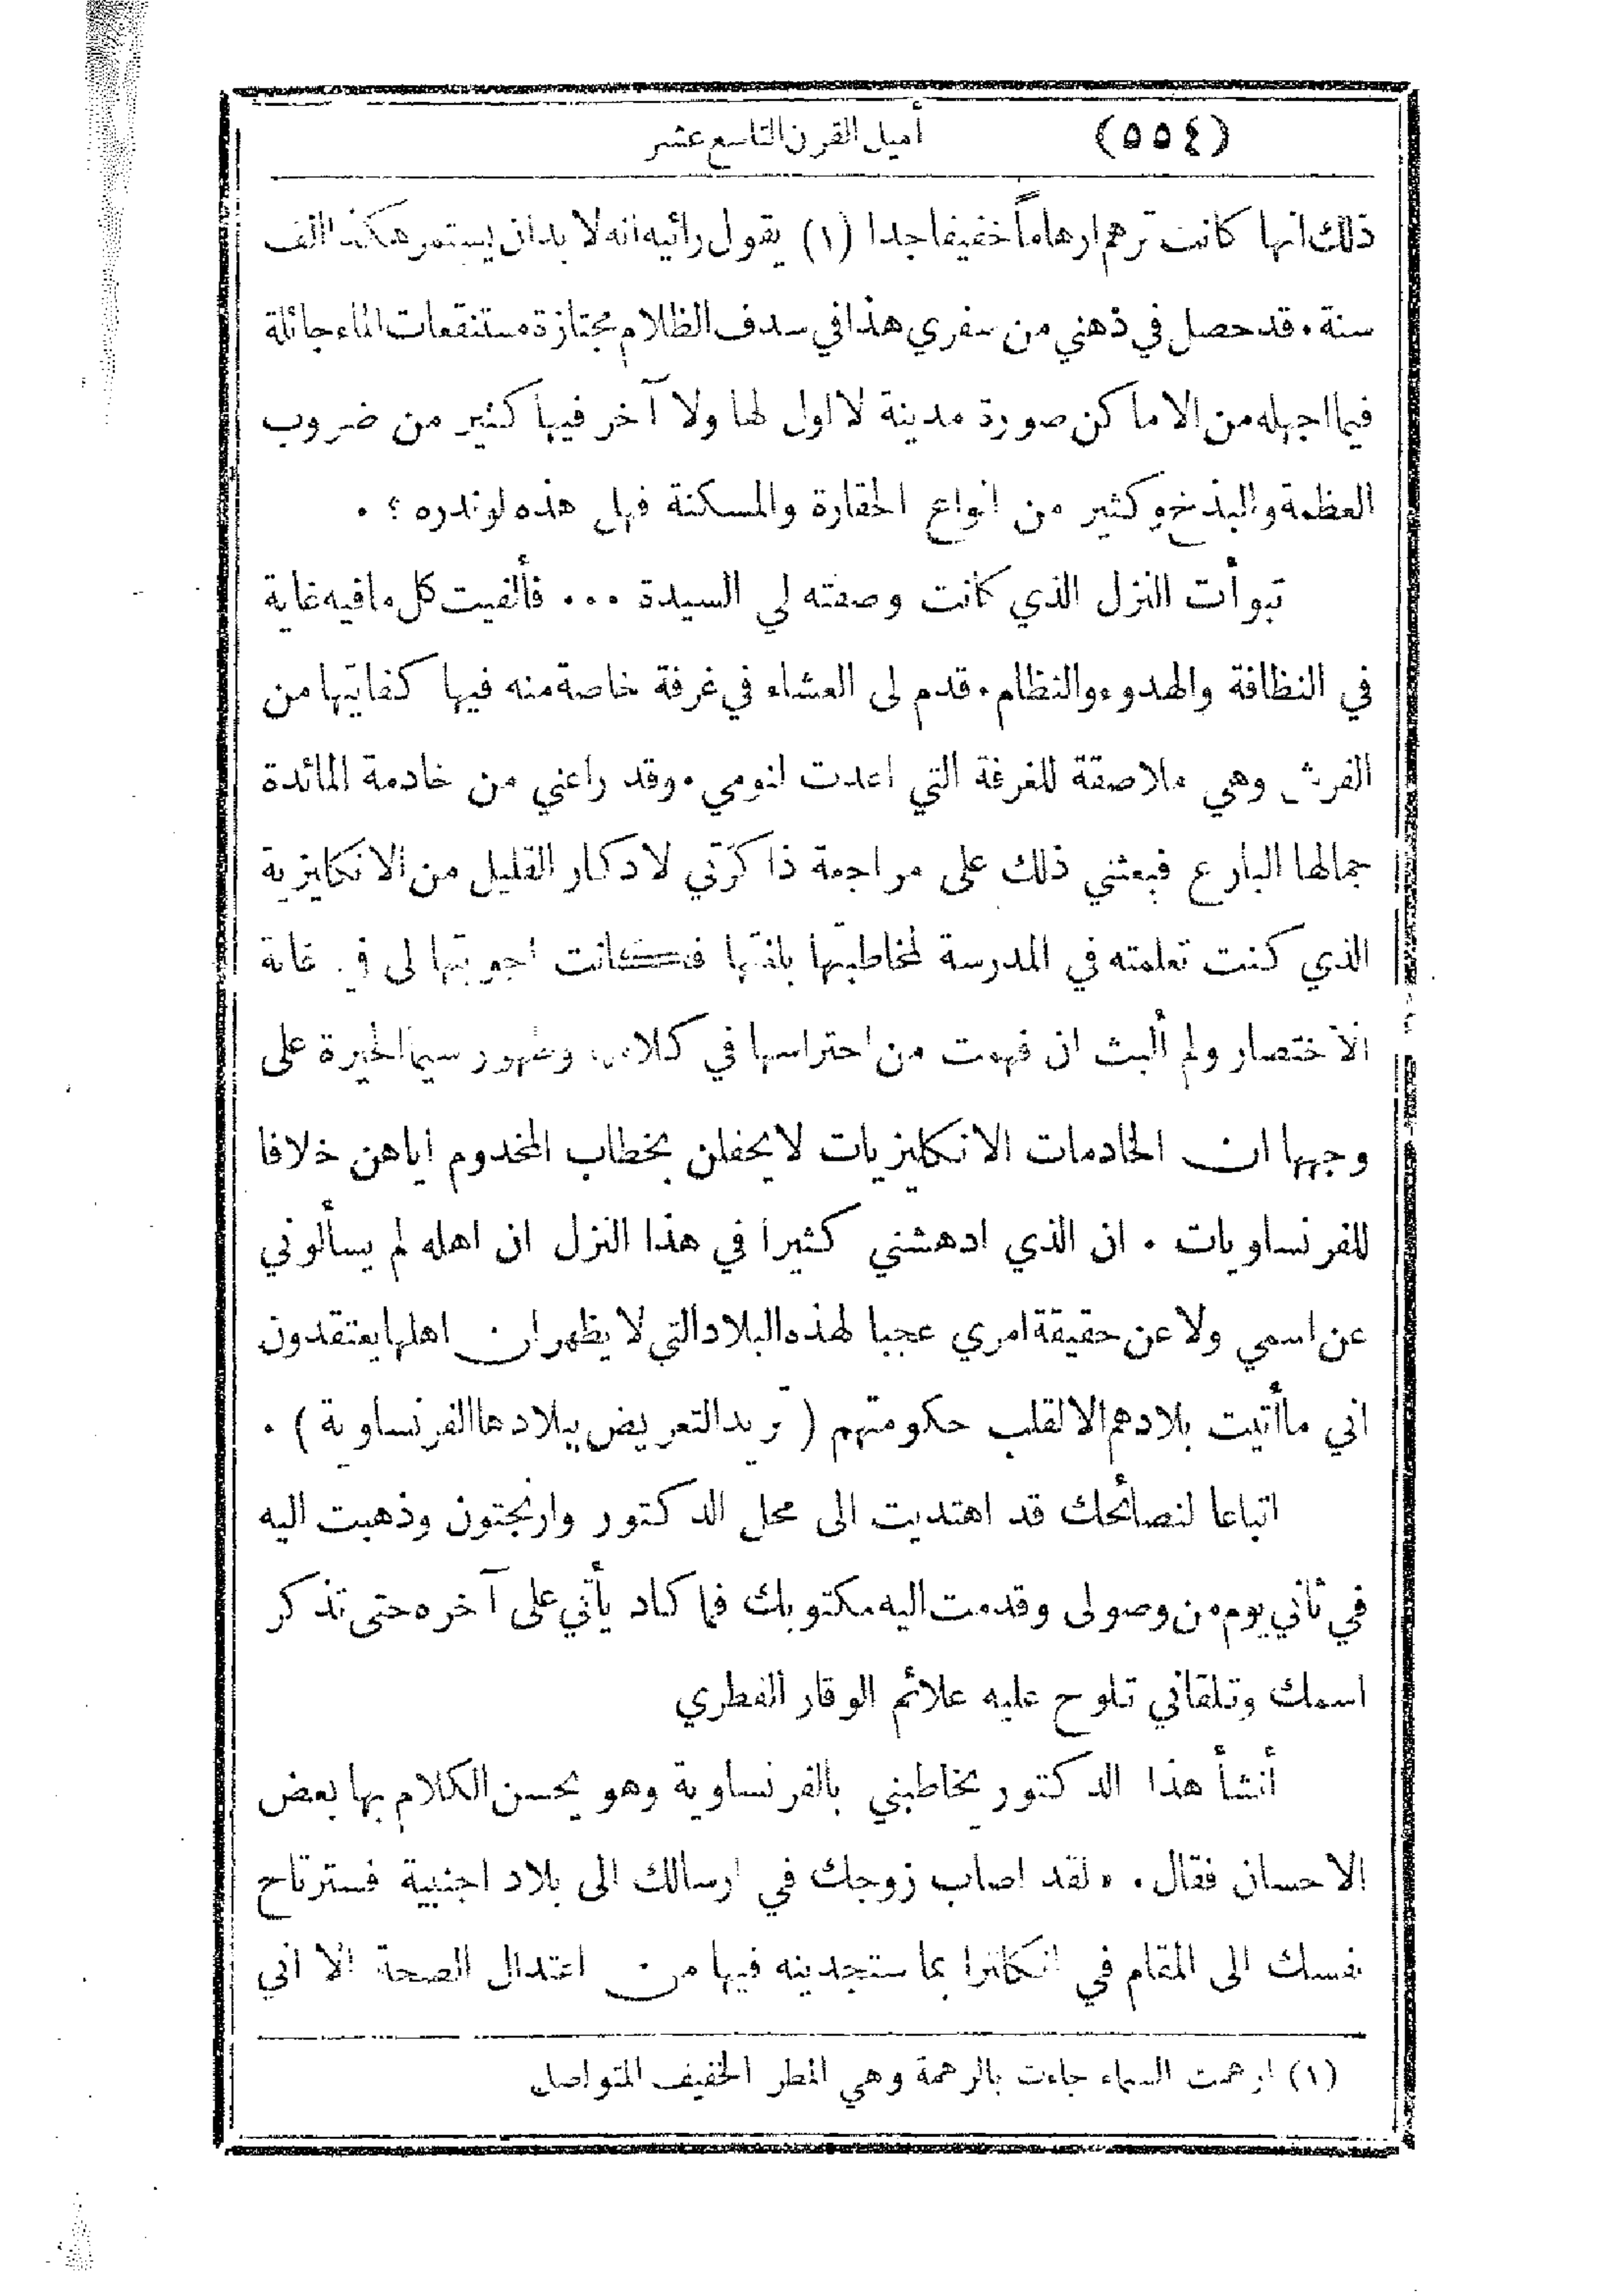 (٥٥٤) أميل القرن التاسع عشر
ذلك انها كانت ترهم ارهاماً خفيفا جدا (١) يقول رائيه انه لا بد ان يستمر هكذا الف
سنة. قد حصل في ذهني من سفري هذا في سدف الظلام مجتازة مستنقعات الماء جائلة
فيما اجهله من الاماكن صورة مدينة لا اول لها ولا آخر فيها كثير من ضروب
العظمة والبذخ وكثير من انواع الحقارة والمسكنة فهل هذه لوندره ؟ .
تبوأت النزل الذي كانت وصفته لي السيدة ... فألفيت كل ما فيه غاية
في النظافة والهدوء والنظام. قدم لى العشاء في غرفة خاصة منه فيها كفايتها من
الفرش وهي ملاصقة للغرفة التي اعدت لنومي. وقد راعني من خادمة المائدة
جمالها البارع فبعثني ذلك على مراجعة ذاكرتي لادكار القليل من الانكليزية
الذي كنت تعلمته في المدرسة لمخاطبتها بلغتها فكانت اجوبتها لى في غاية
الاختصار ولم ألبث ان فهمت من احتراسها في كلامي وظهور سيما الحيرة على
وجهها ان الخادمات الانكليزيات لا يحفلن بخطاب المخدوم اياهن خلافا
للفرنساويات . ان الذي ادهشني كثيرا في هذا النزل ان اهله لم يسألوني
عن اسمي ولا عن حقيقة امري عجبا لهذه البلاد التي لا يظهر ان اهلها يعتقدون
اني ما أتيت بلادهم الا لقلب حكومتهم ( تريد التعريض ببلادها الفرنساوية ) .
اتباعا لنصائحك قد اهتديت الى محل الدكتور وارنجتون وذهبت اليه
في ثاني يوم من وصولى وقدمت اليه مكتوبك فما كاد يأتي على آخره حتى تذكر
اسمك وتلقاني تلوح عليه علائم الوقار الفطري
أنشأ هذا الدكتور يخاطبني بالفرنساوية وهو يحسن الكلام بها بعض
الاحسان فقال. « لقد اصاب زوجك في ارسالك الى بلاد اجنبية فسترتاح
نفسك الى المقام في انكلترا بما ستجدينه فيها من اعتدال الصحة الا اني
(١) ارهمت السماء جاءت بالرهمة وهي المطر الخفيف المتواصل